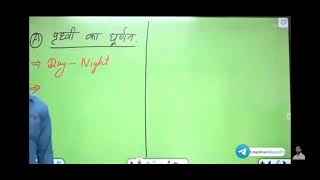 (A) पृथ्वी का घूर्णन.
⇒ Day - Night
⇒